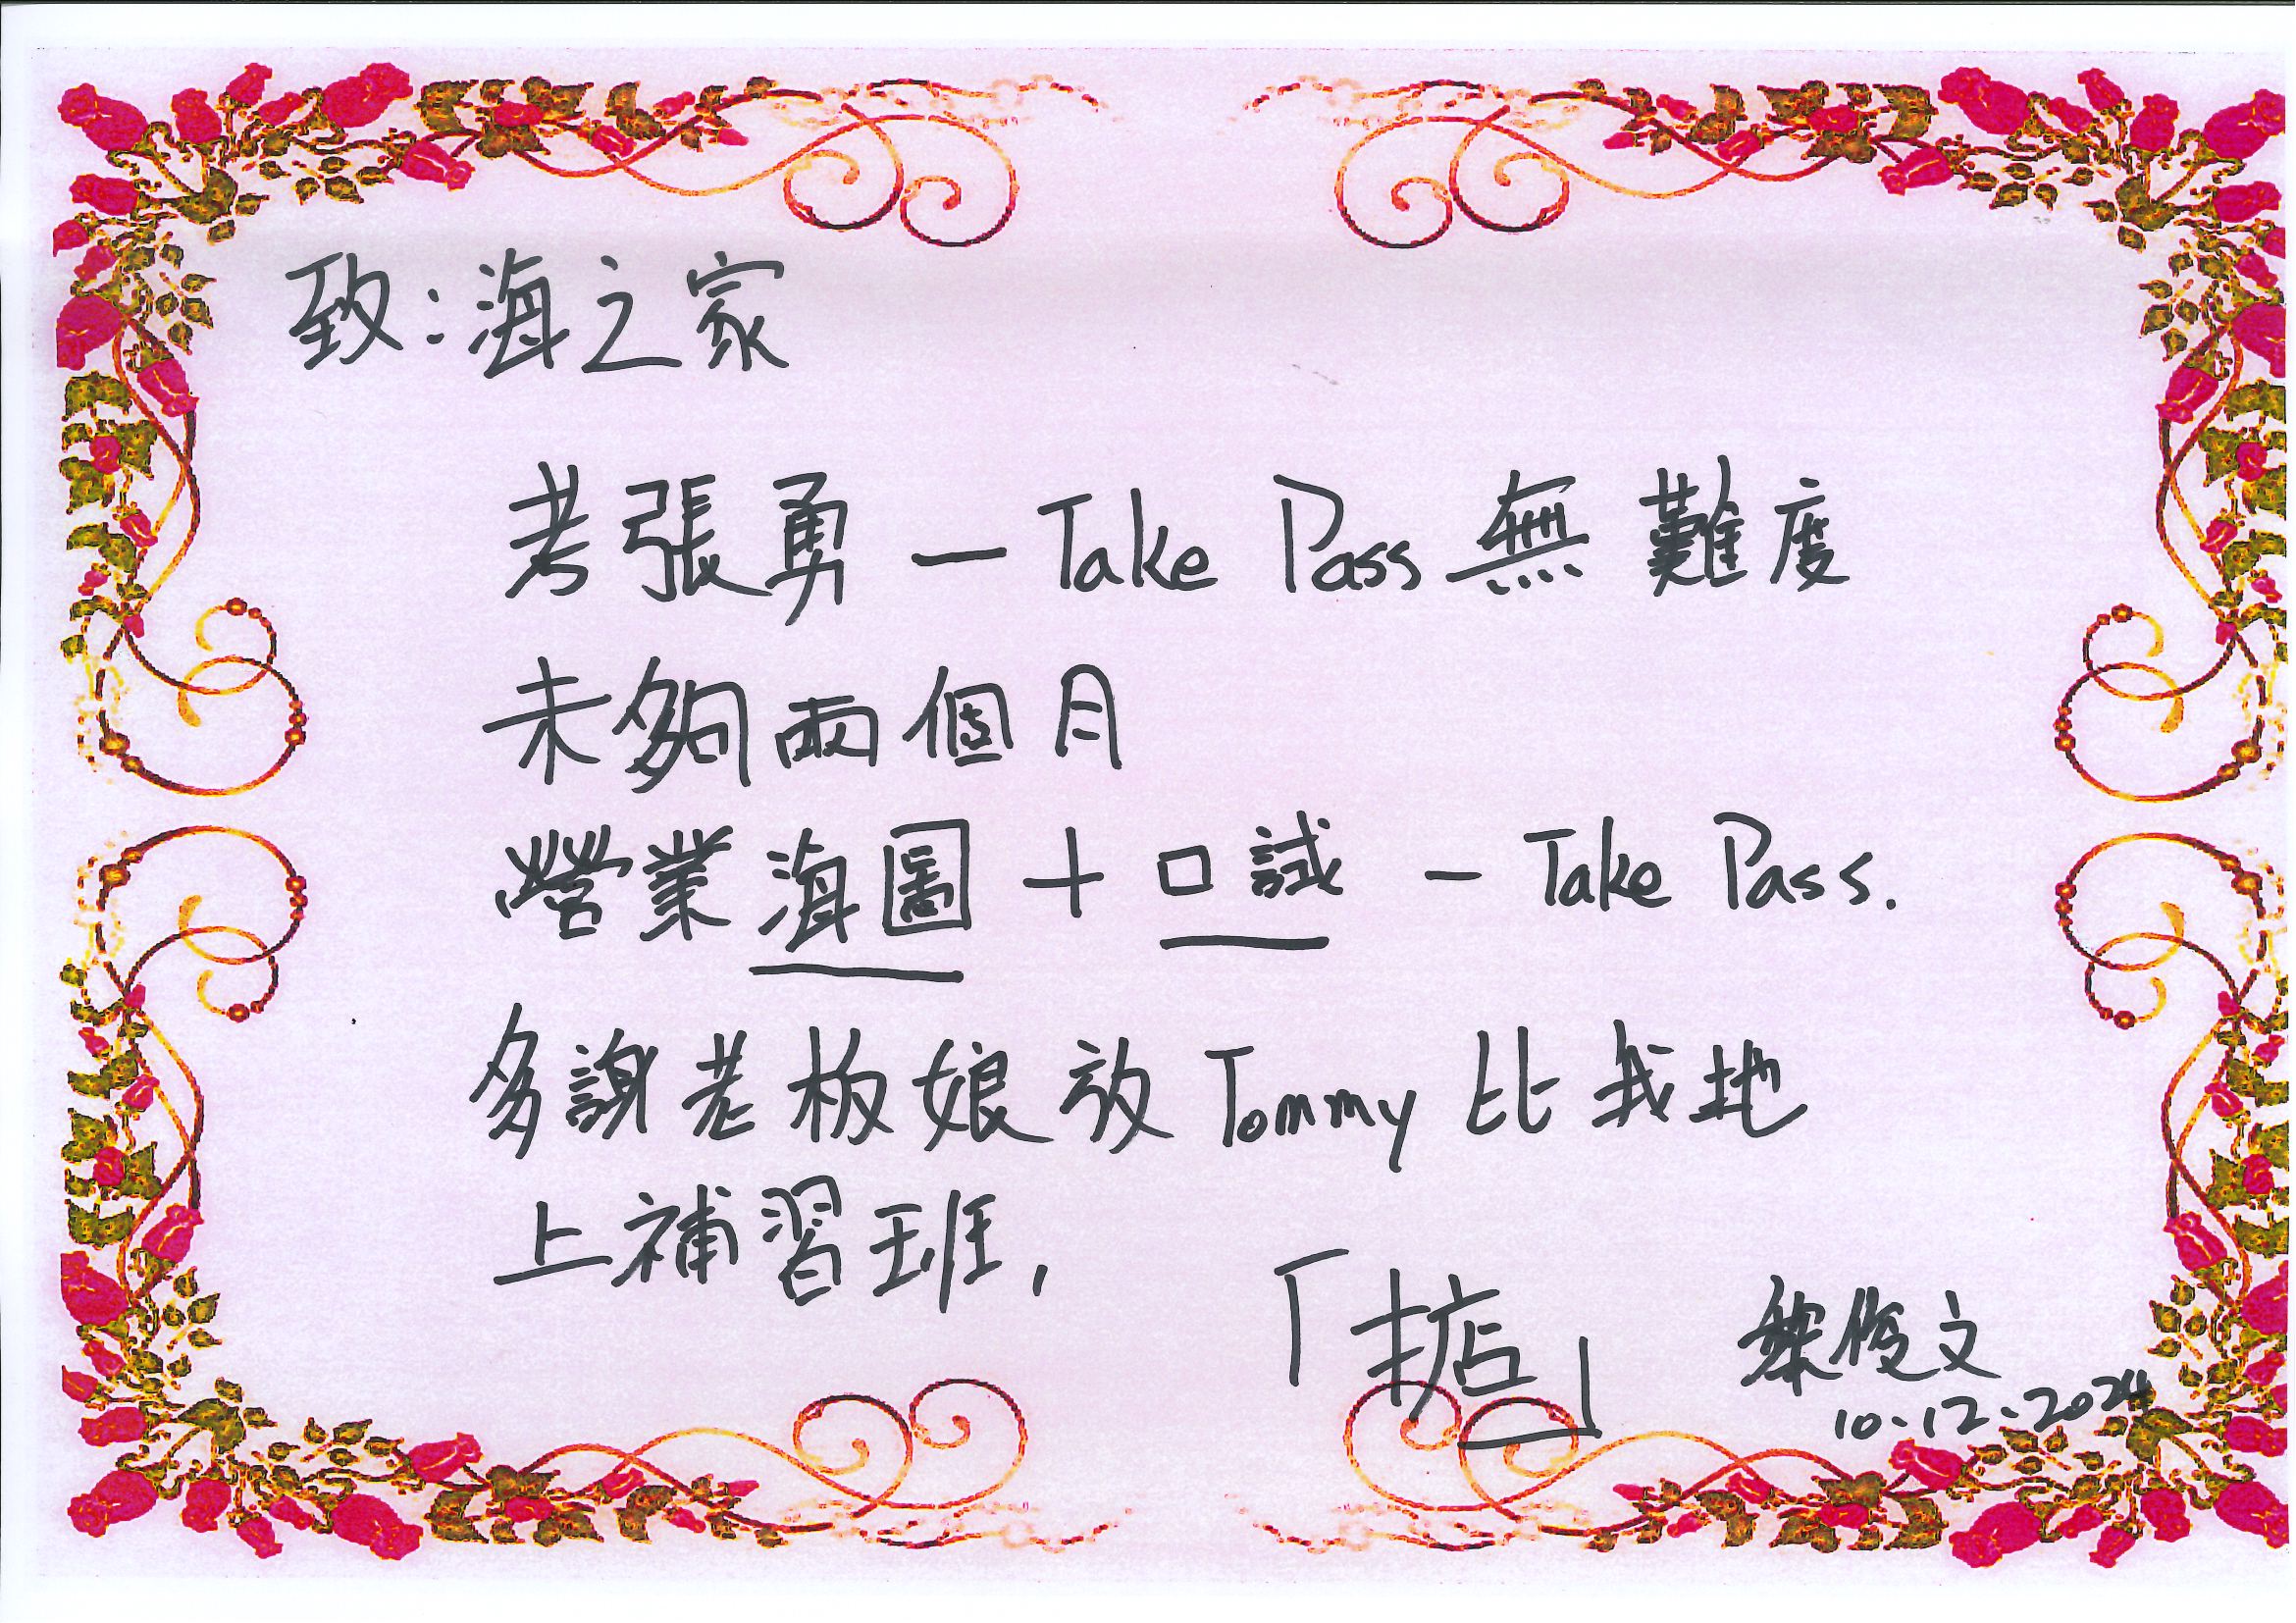 致：海之家
考張勇 — Take Pass 無難度
未夠兩個月
營業海圖 + 口試 - Take Pass.
多謝老板娘放 Tommy 比我地
上補習班,
「掂」
黎俊文
10.12.2024